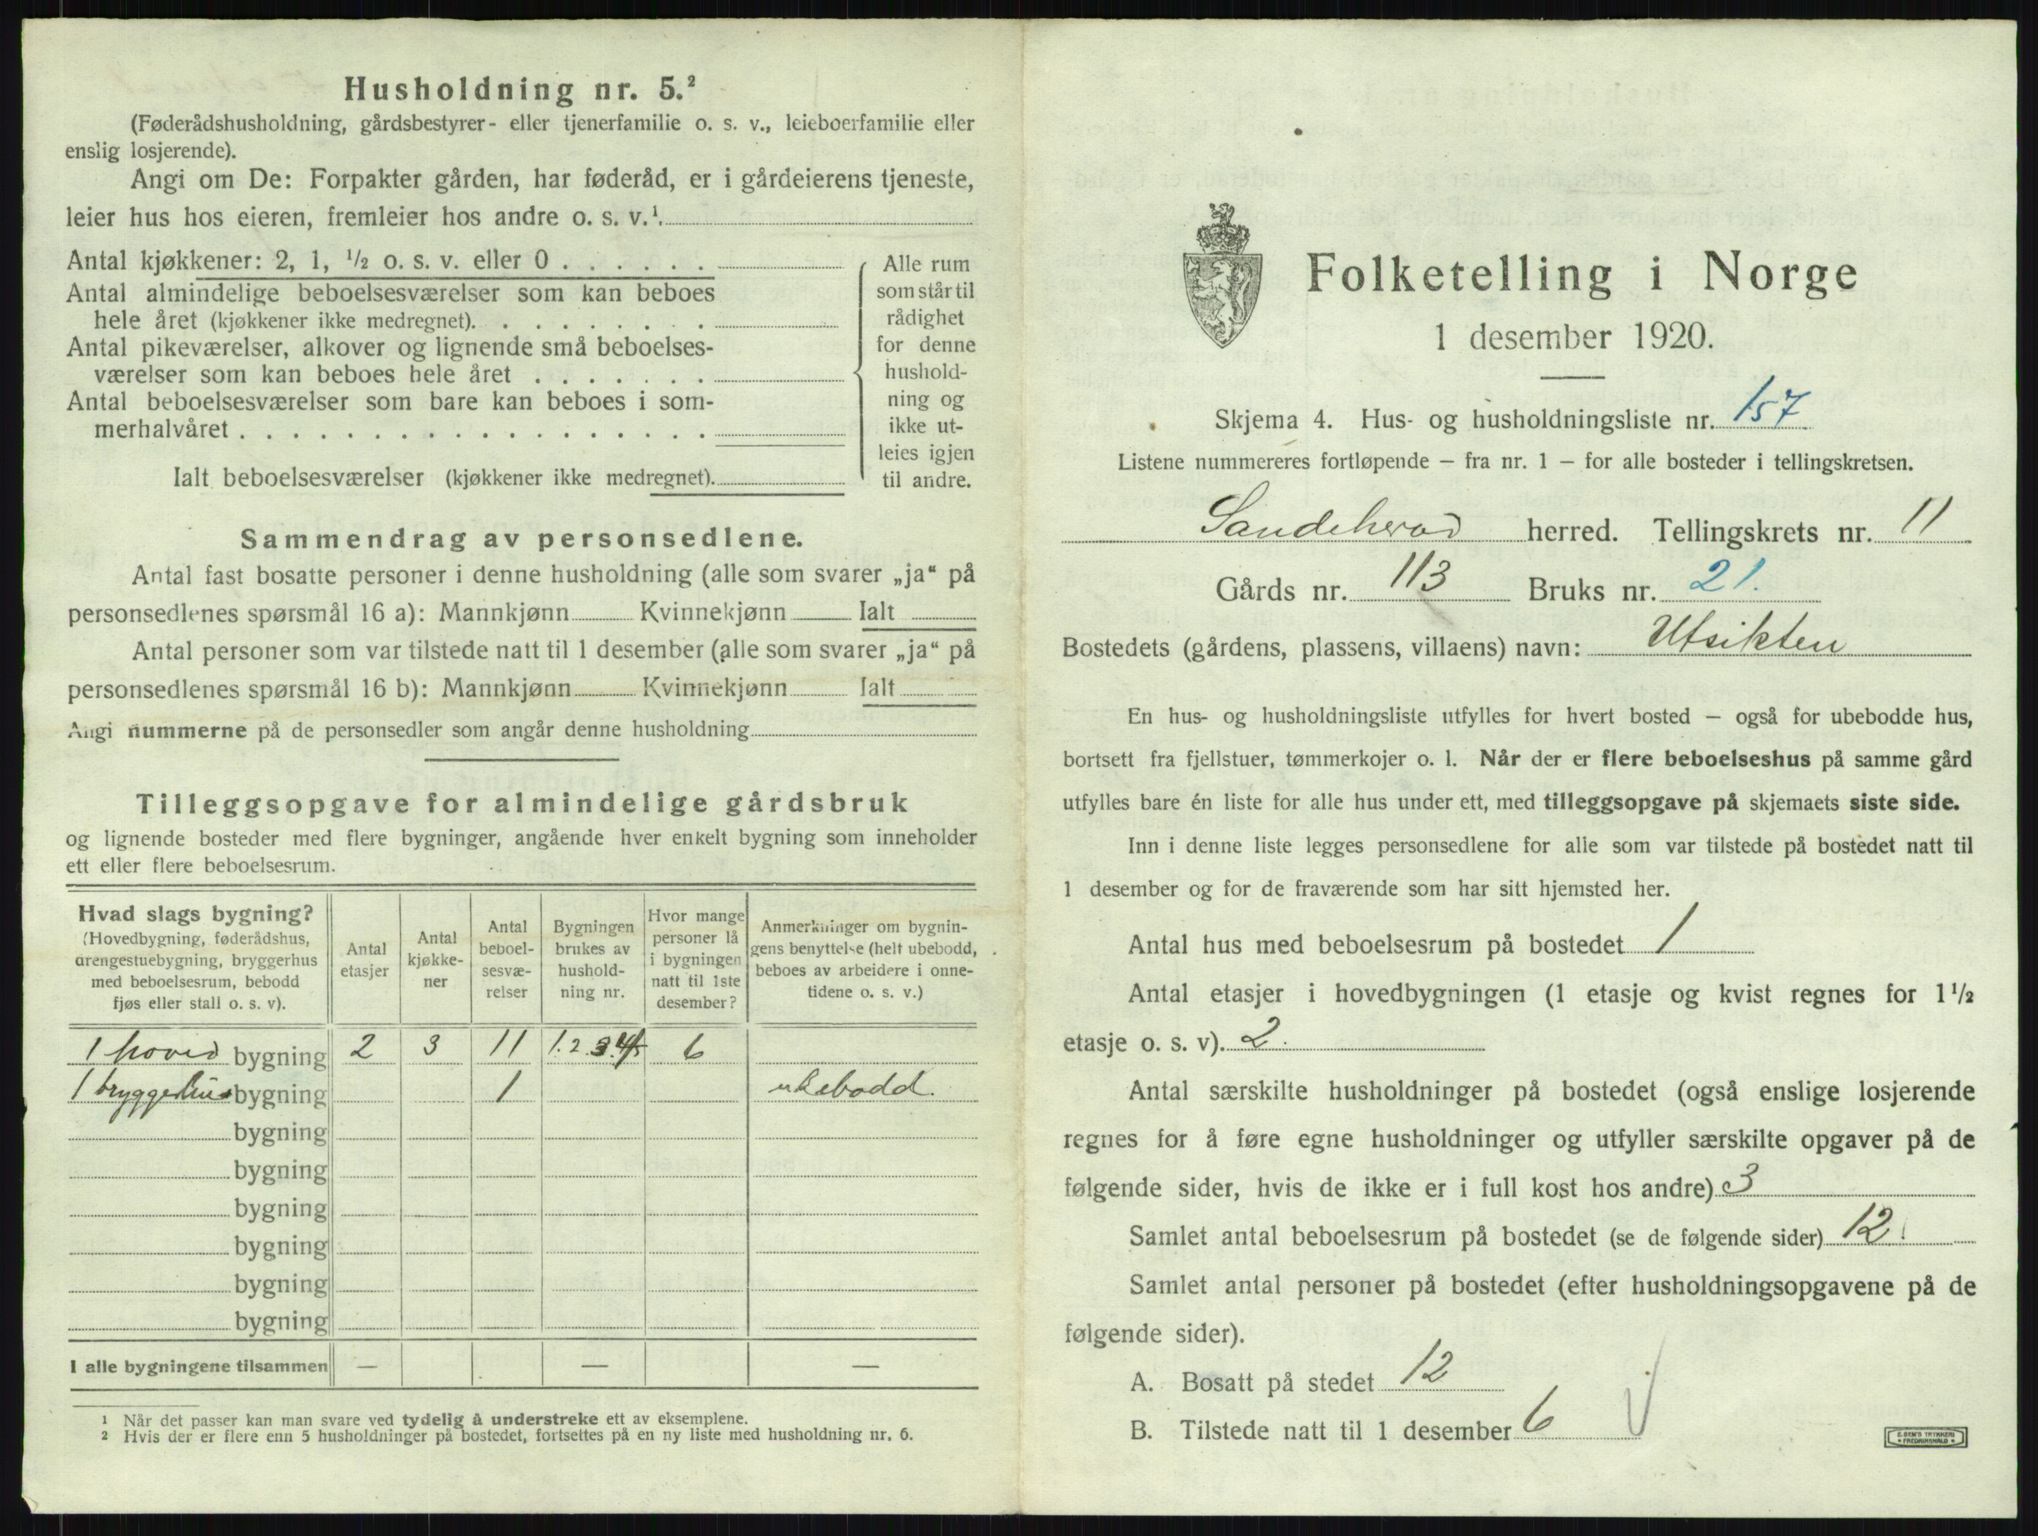 Husholdning nr. 5.²
(Føderådshusholdning, gårdsbestyrer- eller tjenerfamilie o. s. v., leieboerfamilie eller
enslig losjerende).
Angi om De: Forpakter gården, har føderåd, er i gårdeierens tjeneste,
leier hus hos eieren, fremleier hos andre o. s. v.¹
Antal kjøkkener: 2, 1, ½ o. s. v. eller 0 . . . . . .
Antal almindelige beboelsesværelser som kan beboes
hele året (kjøkkener ikke medregnet). . . . . . . . .
Antal pikeværelser, alkover og lignende små beboelses-
værelser som kan beboes hele året . . . . . . .
Antal beboelsesværelser som bare kan beboes i som-
merhalvåret . . . . . . . . . . . . . . . . . .
Ialt beboelsesværelser (kjøkkener ikke medregnet).
Alle rum
som står til
rådighet
for denne
hushold-
ning og
ikke ut-
leies igjen
til andre.
Sammendrag av personsedlene.
Antal fast bosatte personer i denne husholdning (alle som svarer „ja“ på
personsedlenes spørsmål 16 a): Mannkjønn Kvinnekjønn Ialt
Antal personer som var tilstede natt til 1 desember (alle som svarer „ja“ på
personsedlenes spørsmål 16 b): Mannkjønn Kvinnekjønn Ialt
Angi nummerne på de personsedler som angår denne husholdning
Tilleggsopgave for almindelige gårdsbruk
og lignende bosteder med flere bygninger, angående hver enkelt bygning som inneholder
ett eller flere beboelsesrum.
Hvad slags bygning?
(Hovedbygning, føderådshus,
drengestuebygning, bryggerhus
med beboelsesrum, bebodd
fjøs eller stall o. s. v).
Antal
etasjer
Antal
kjøkke-
ner
Antal
beboel-
sesvæ-
relser
Bygningen
brukes av
hushold-
ning nr.
Hvor mange
personer lå
i bygningen
natt til 1ste
desember?
Anmerkninger om bygnin-
gens benyttelse (helt ubebodd,
beboes av arbeidere i onne-
tidene o. s. v.)
1 hoved bygning 2 3 11 1.2.3 6
1 bryggerhus bygning 1 ubebodd.
bygning
bygning
bygning
bygning
bygning
bygning
I alle bygningene tilsammen — — —
1 Når det passer kan man svare ved tydelig å understreke ett av eksemplene.
2 Hvis der er flere enn 5 husholdninger på bostedet, fortsettes på en ny liste med husholdning nr. 6.
Folketelling i Norge
1 desember 1920.
Skjema 4. Hus- og husholdningsliste nr. 157
Listene nummereres fortløpende – fra nr. 1 – for alle bosteder i tellingskretsen.
Sandeherad herred. Tellingskrets nr. 11
Gårds nr. 113 Bruks nr. 21.
Bostedets (gårdens, plassens, villaens) navn: Utsikten
En hus- og husholdningsliste utfylles for hvert bosted – også for ubebodde hus,
bortsett fra fjellstuer, tømmerkojer o. l. Når der er flere beboelseshus på samme gård
utfylles bare én liste for alle hus under ett, med tilleggsopgave på skjemaets siste side.
Inn i denne liste legges personsedlene for alle som var tilstede på bostedet natt til
1 desember og for de fraværende som har sitt hjemsted her.
Antal hus med beboelsesrum på bostedet 1
Antal etasjer i hovedbygningen (1 etasje og kvist regnes for 1½
etasje o. s. v). 2.
Antal særskilte husholdninger på bostedet (også enslige losjerende
regnes for å føre egne husholdninger og utfyller særskilte opgaver på de
følgende sider, hvis de ikke er i full kost hos andre) 3
Samlet antal beboelsesrum på bostedet (se de følgende sider) 12.
Samlet antal personer på bostedet (efter husholdningsopgavene på de
følgende sider).
A. Bosatt på stedet 12
B. Tilstede natt til 1 desember 6